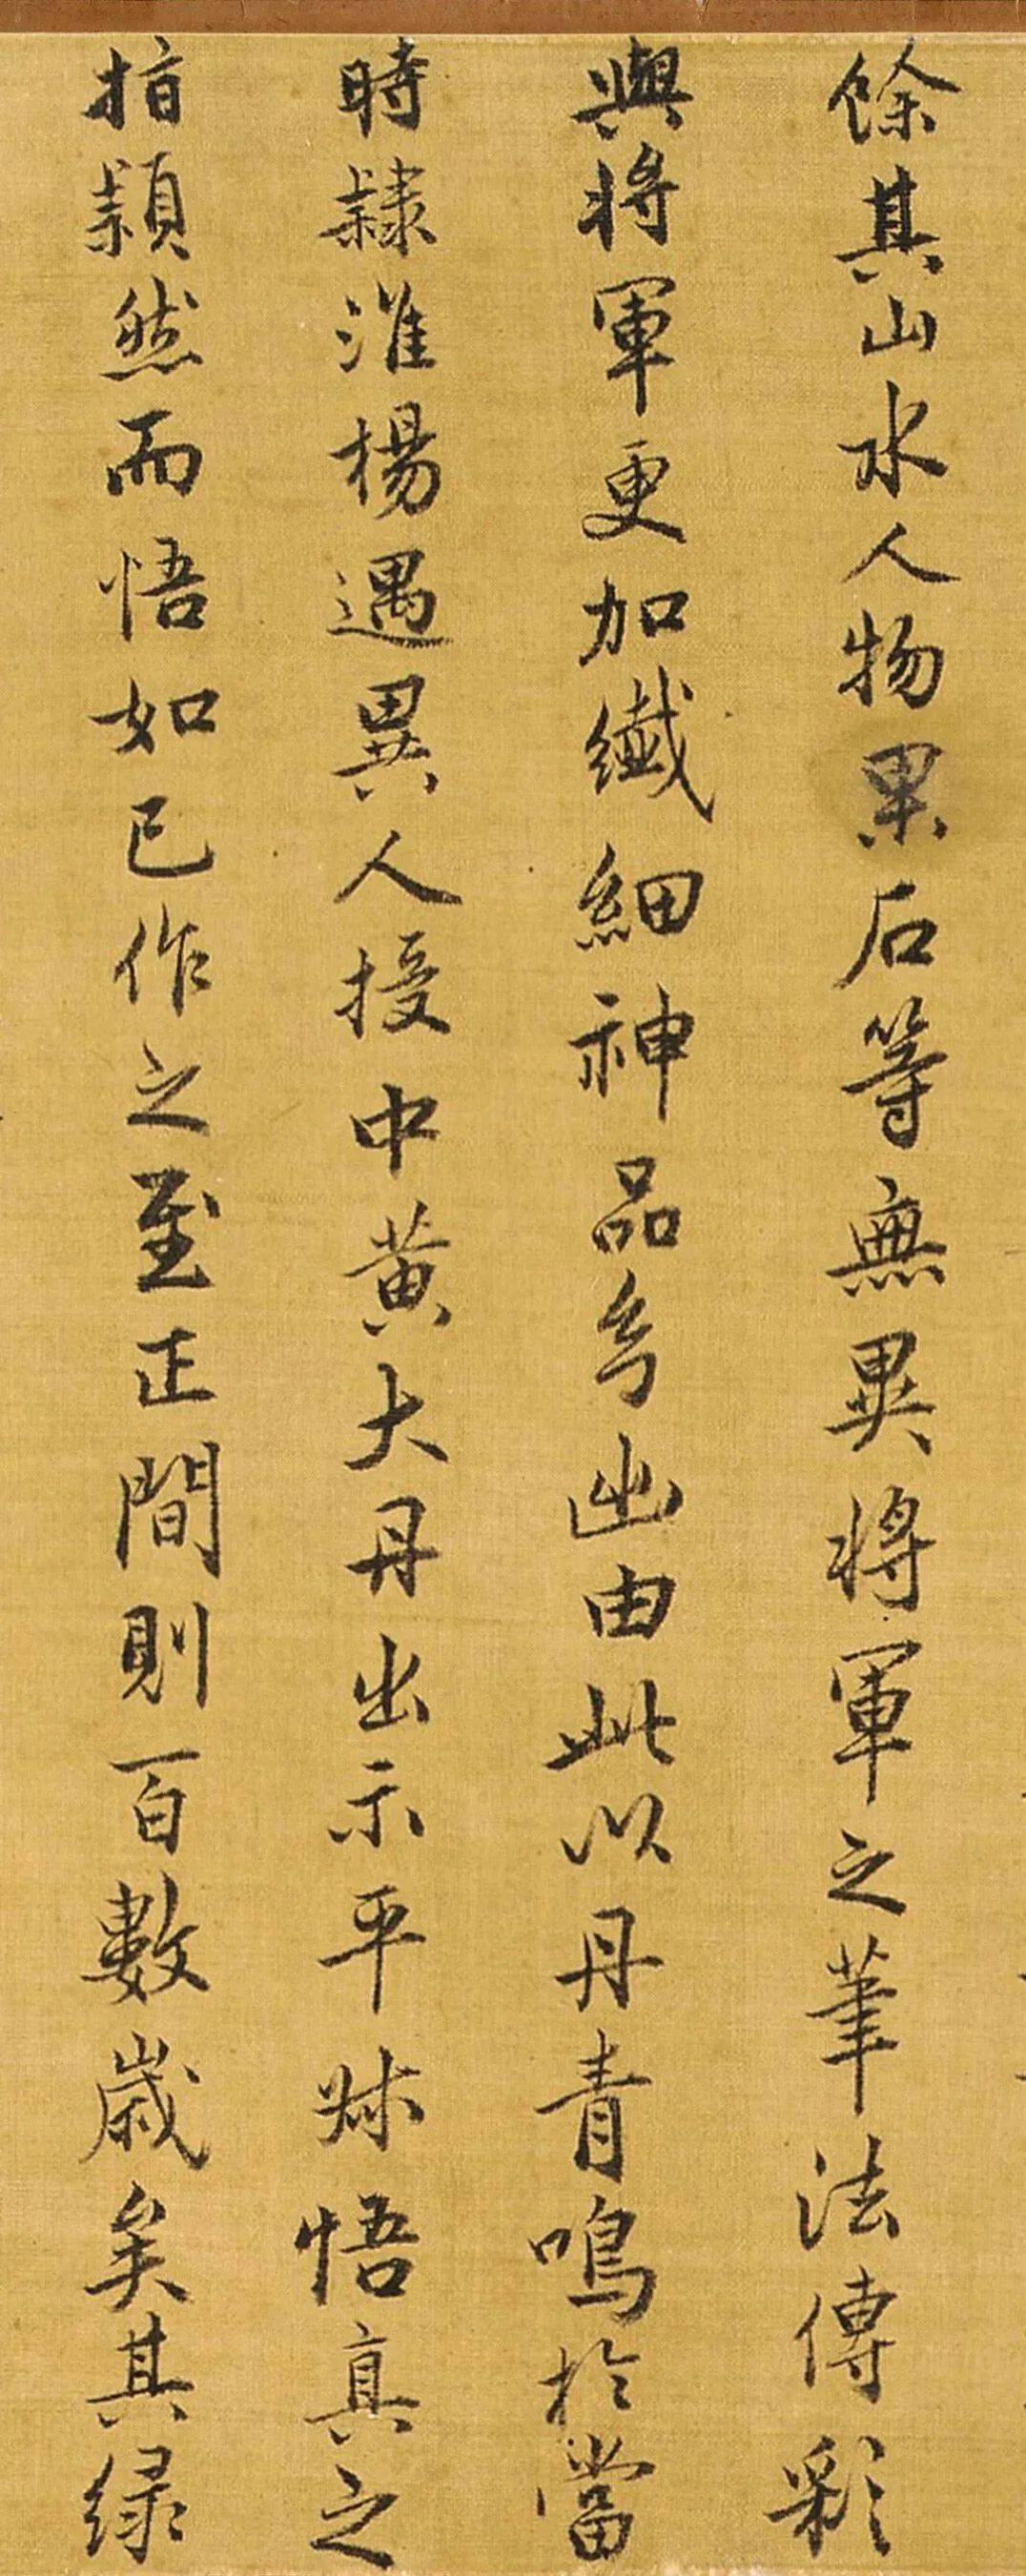 餘其山水人物果石等無異將軍之筆法傳彩
與將軍更加纖細神品矣幽由此以丹青鳴於當
時隸淮楊遇異人授中黃大丹出示平叔悟真之
指頴然而悟如已作之至正間則百數歲矣其綠